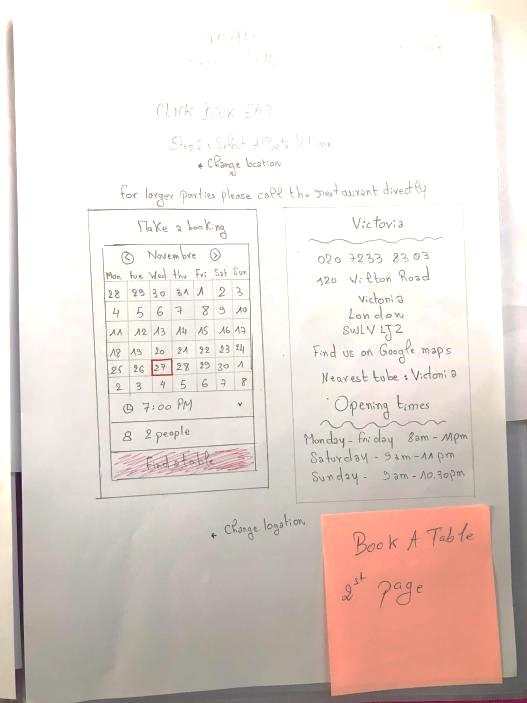 CLICK BOOK EAT
Step 2: Select a Date & Time
Change location
For larger parties please call the restaurant directly
Make a booking
Novembre
Mon Tue Wed Thu Fri Sat Sun
28 29 30 31 1 2 3
4 5 6 7 8 9 10
11 12 13 14 15 16 17
18 19 20 21 22 23 24
25 26 27 28 29 30 1
2 3 4 5 6 7 8
7:00 PM
2 people
Find a table
Change location
Victoria
020 7233 8303
120 Wilton Road
Victoria
London
SW1V LJZ
Find us on Google maps
Nearest tube: Victoria
Opening times
Monday - friday 8am - 11pm
Saturday - 9am - 11pm
Sunday - 9am - 10.30pm
Book A Table
2st page